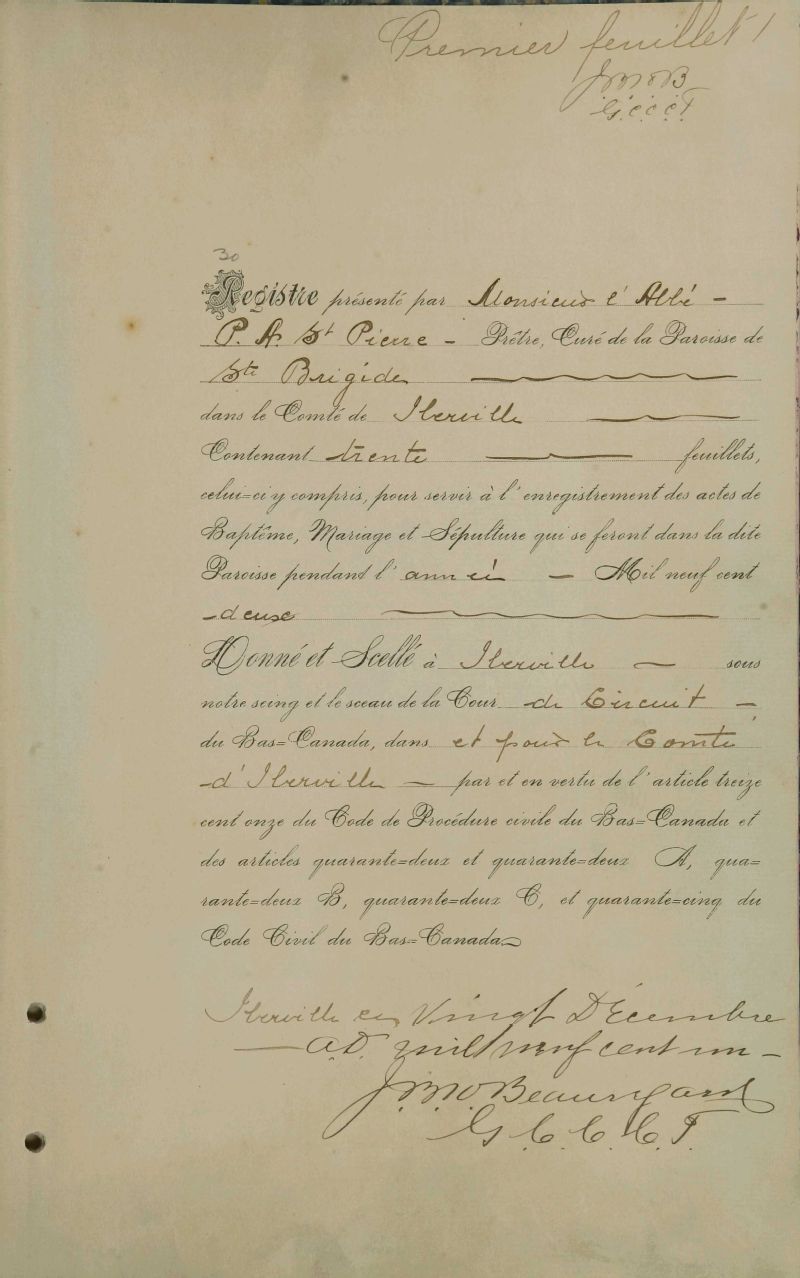 Premier feuillet 1
JMOB
G.C.C.C.T
30
Registre présenté par Monsieur l'Abbé -
P. A. St Pierre - Prêtre, Curé de la Paroisse de
Ste Brigide
dans le Comté de Iberville
Contenant trente feuillets,
celui=ci y compris, pour servir à l'enregistrement des actes de
Baptême, Mariage et Sépulture qui se feront dans la dite
Paroisse pendant l'année - Mil neuf cent
-deux
Donné et Scellé à Iberville - sous
notre seing et le sceau de la Cour de Circuit -
du Bas=Canada, dans et pour le Comté
-d'Iberville - par et en vertu de l'article treize
cent onze du Code de Procédure civile du Bas=Canada et
des articles quarante=deux et quarante=deux A, qua=
rante=deux B, quarante=deux C, et quarante=cinq du
Code Civil du Bas=Canada
Iberville ce Vingt Décembre
- A.D. mil neuf cent un -
J.M.O Beauregard
G.C.C.C.T.